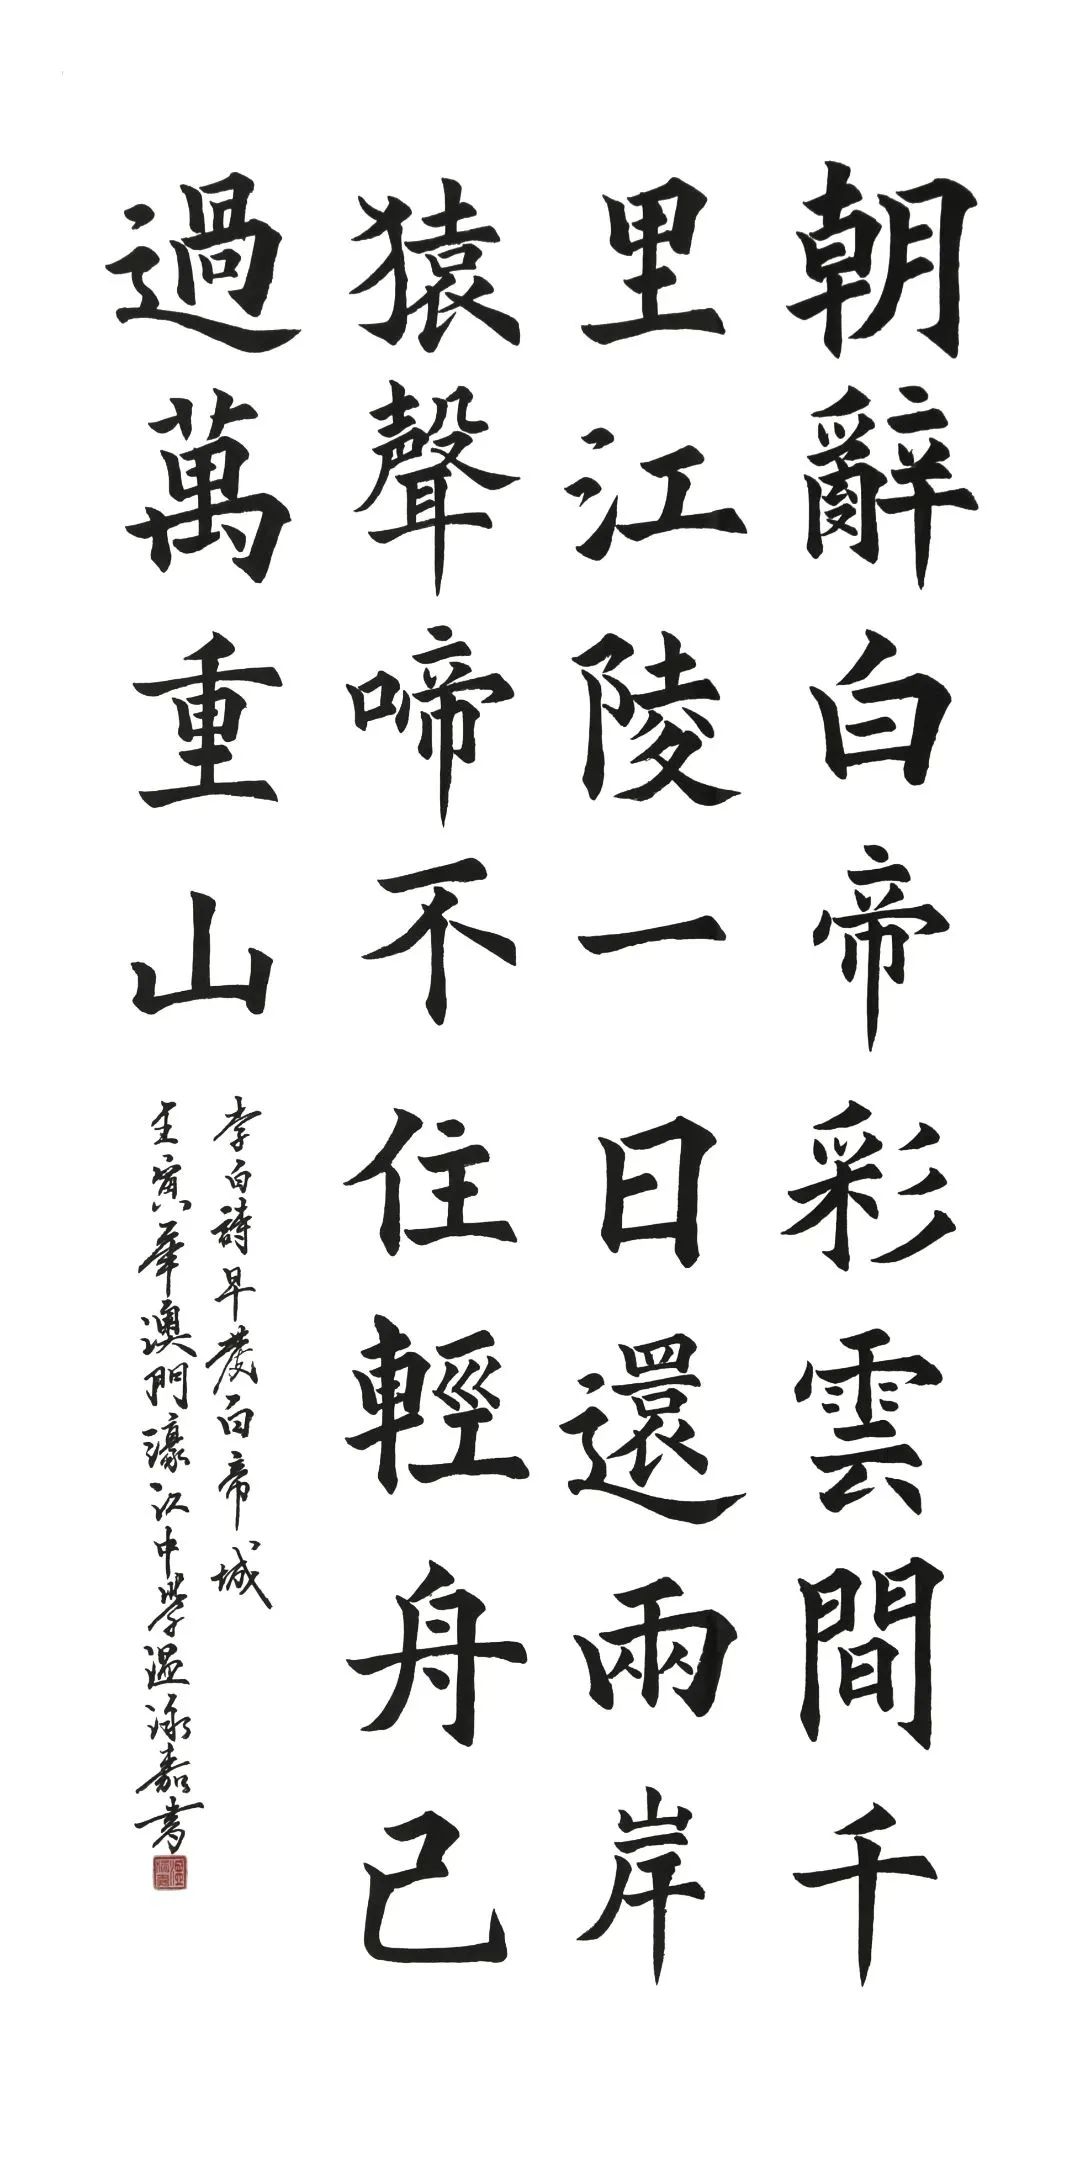 朝辭白帝彩雲間千
里江陵一日還兩岸
猿聲啼不住輕舟已
過萬重山
李白詩早發白帝城
壬寅年澳門濠江中學溫泳嘉書